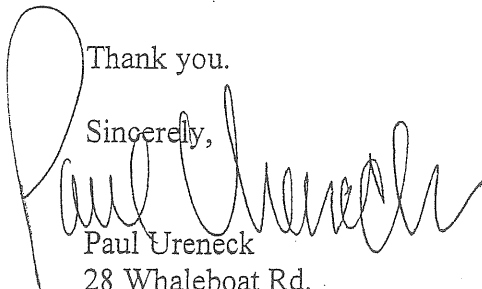 Thank you.
Sincerely,
Paul Ureneck
Paul Ureneck
28 Whaleboat Rd.